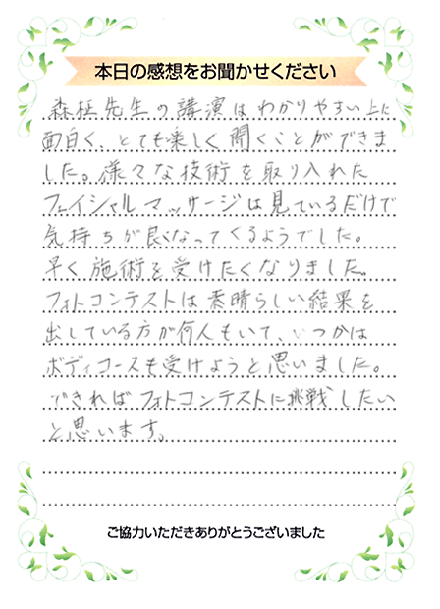 本日の感想をお聞かせください
森柾先生の講演はわかりやすい上に
面白く、とても楽しく聞くことができま
した。様々な技術を取り入れた
フェイシャルマッサージは見ているだけで
気持ちが良くなってくるようでした。
早く施術を受けたくなりました。
フォトコンテストは素晴らしい結果を
出している方が何人もいて、いつかは
ボディコースも受けようと思いました。
できればフォトコンテストに挑戦したい
と思います。
ご協力いただきありがとうございました